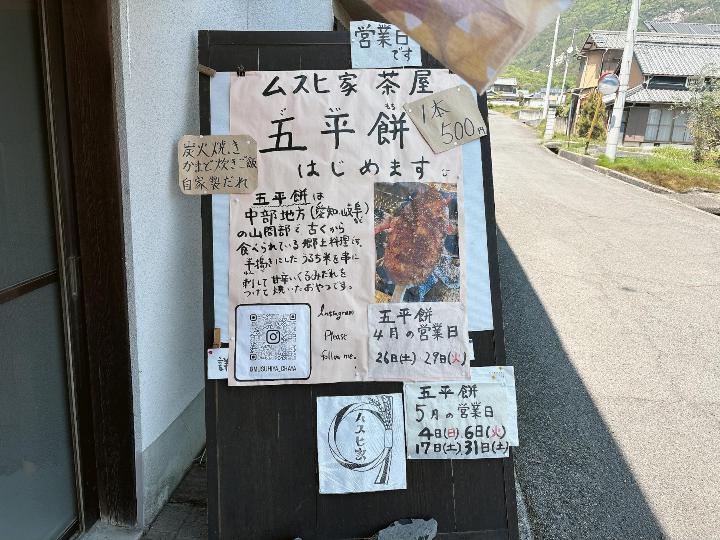 営業日
です
ムスヒ家 茶屋
ご へい もち
五平餅
はじめます
1本
500円
炭火焼き
かまど炊きご飯
自家製だれ
五平餅は
中部地方(愛知、岐阜)など
の山間部で古くから
食べられている郷土料理で、
半搗きにしたうるち米を串に
刺して甘辛いくるみだれを
つけて焼いたおやつです。
Instagram
Please
follow me!
@MUSUHIYA_CHAYA
五平餅
4月の営業日
26日(土) 29日(火)
五平餅
5月の営業日
4日(日) 6日(火)
17日(土) 31日(土)
ムスヒ家